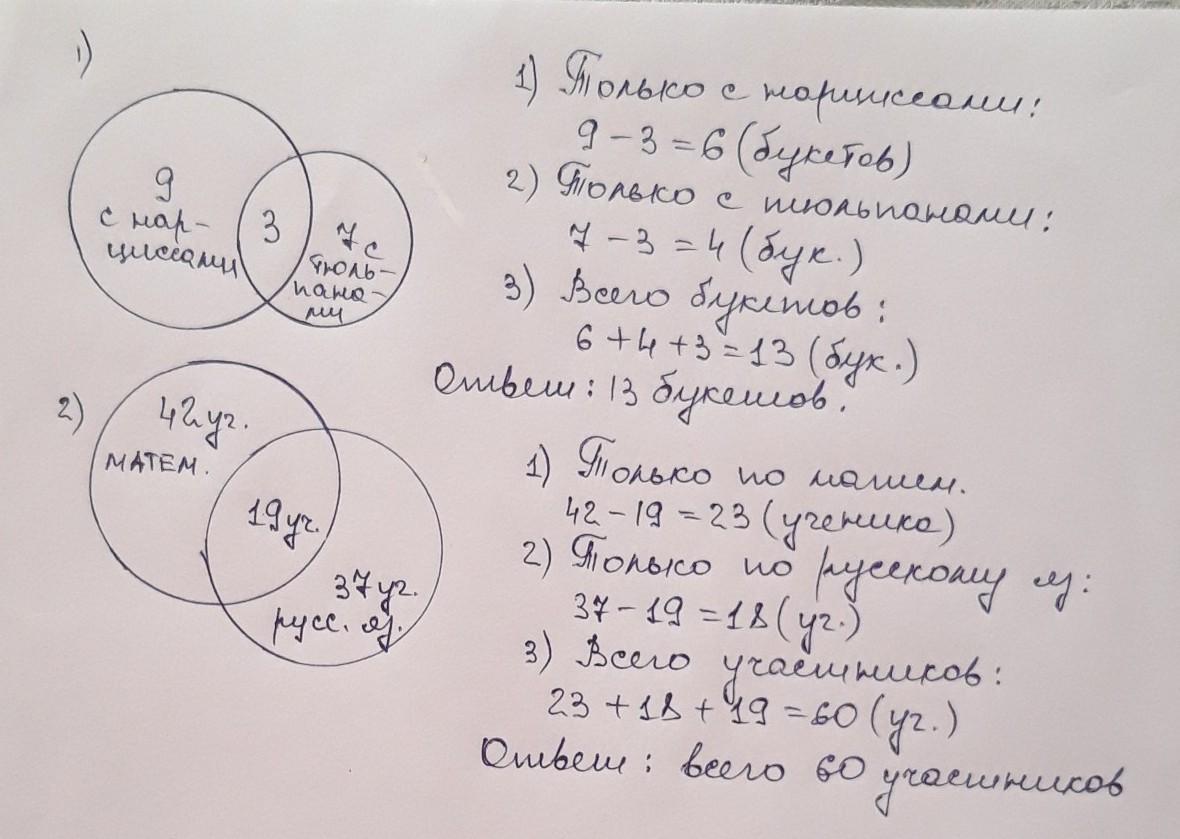 1)
9
с нар-
циссами
3
7 с
тюль-
пана-
ми
1) Только с нарциссами:
9 - 3 = 6 (букетов)
2) Только с тюльпанами:
7 - 3 = 4 (бук.)
3) Всего букетов:
6 + 4 + 3 = 13 (бук.)
Ответ: 13 букетов.
2)
42 уч.
МАТЕМ.
19 уч.
37 уч.
русс. яз.
1) Только по матем.
42 - 19 = 23 (ученика)
2) Только по русскому яз:
37 - 19 = 18 (уч.)
3) Всего участников:
23 + 18 + 19 = 60 (уч.)
Ответ: всего 60 участников